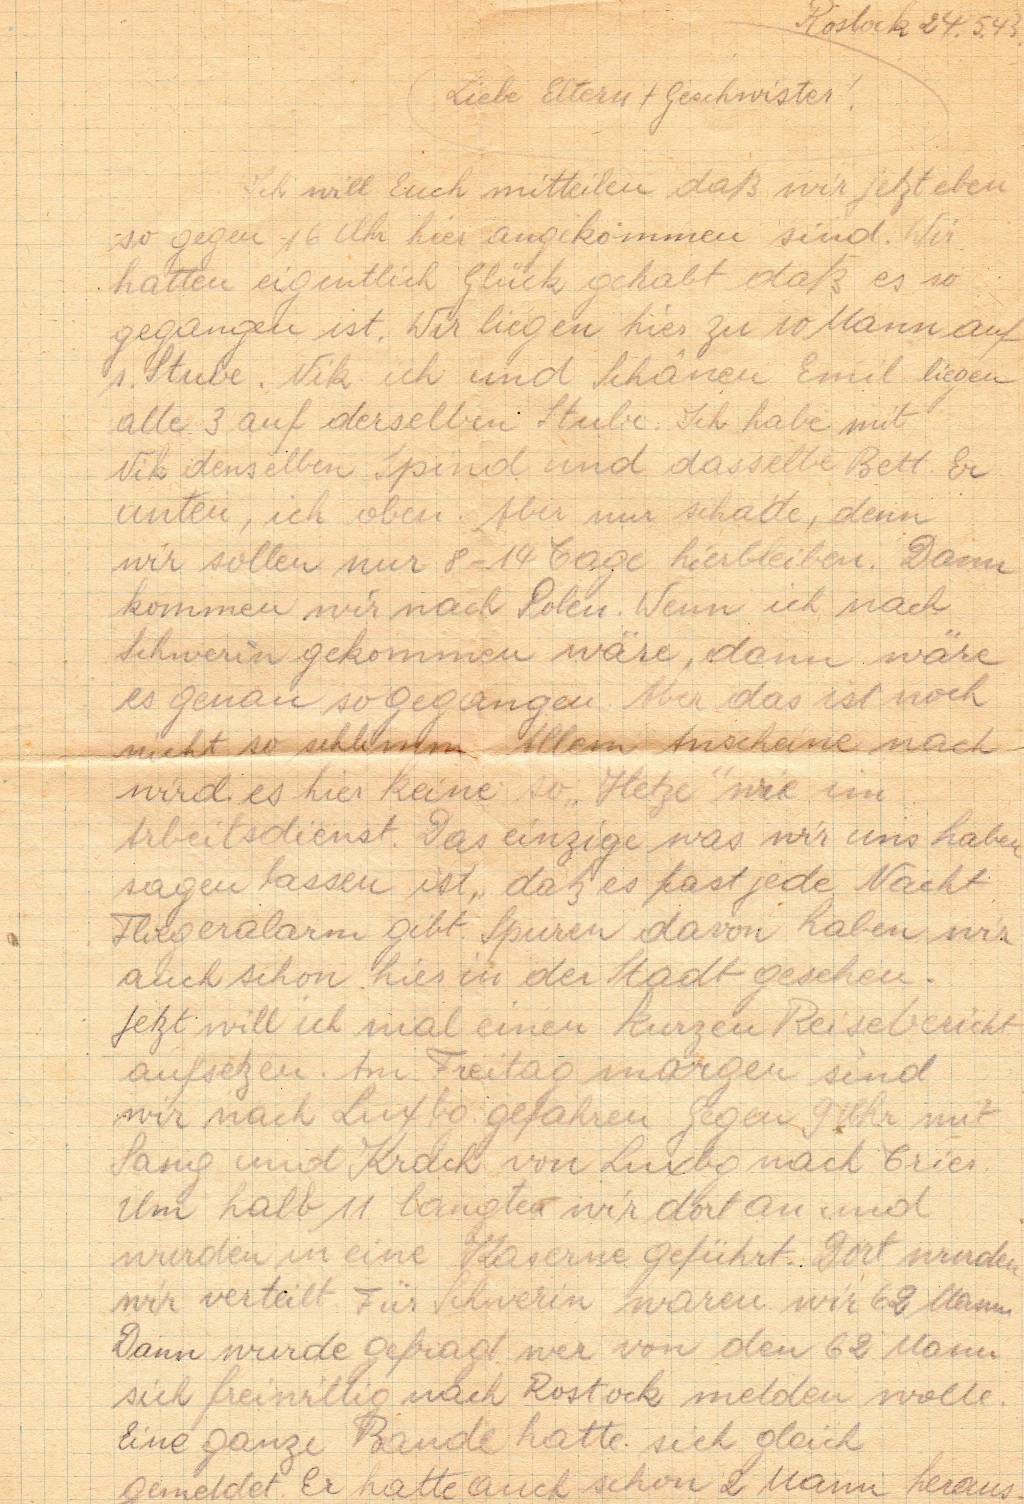 Rostock 24.5.43.
Liebe Eltern + Geschwister!
Ich will Euch mitteilen daß wir jetzt eben
so gegen 16 Uhr hier angekommen sind. Wir
hatten eigentlich Glück gehabt daß es so
gegangen ist. Wir liegen hier zu 10 Mann auf
1. Stube. Nik ich und Schänen Emil liegen
alle 3 auf derselben Stube. Ich habe mit
Nik denselben Spind und dasselbe Bett. Er
unten, ich oben. Aber nur schade, denn
wir sollen nur 8-14 Tage hierbleiben. Dann
kommen wir nach Polen. Wenn ich nach
Schwerin gekommen wäre, dann wäre
es genau so gegangen. Aber das ist noch
nicht so schlimm Allem Anscheine nach
wird es hier keine so „Hetze" wie im
Arbeitsdienst. Das einzige was wir uns haben
sagen lassen ist, daß es fast jede Nacht
Fliegeralarm gibt. Spuren davon haben wir
auch schon hier in der Stadt gesehen.
Jetzt will ich mal einen kurzen Reisebericht
aufsetzen. Am Freitag morgen sind
wir nach Luxbg gefahren gegen 9 Uhr mit
Sang und Krach von Luxbg nach Trier.
Um halb 11 langten wir dort an und
wurden in eine Kaserne geführt. Dort wurden
wir verteilt. Für Schwerin waren wir 62 Mann
Dann wurde gefragt wer von den 62 Mann
sich freiwillig nach Rostock melden wolle.
Eine ganze Bande hatte sich gleich
gemeldet. Er hatte auch schon 2 Mann heraus-